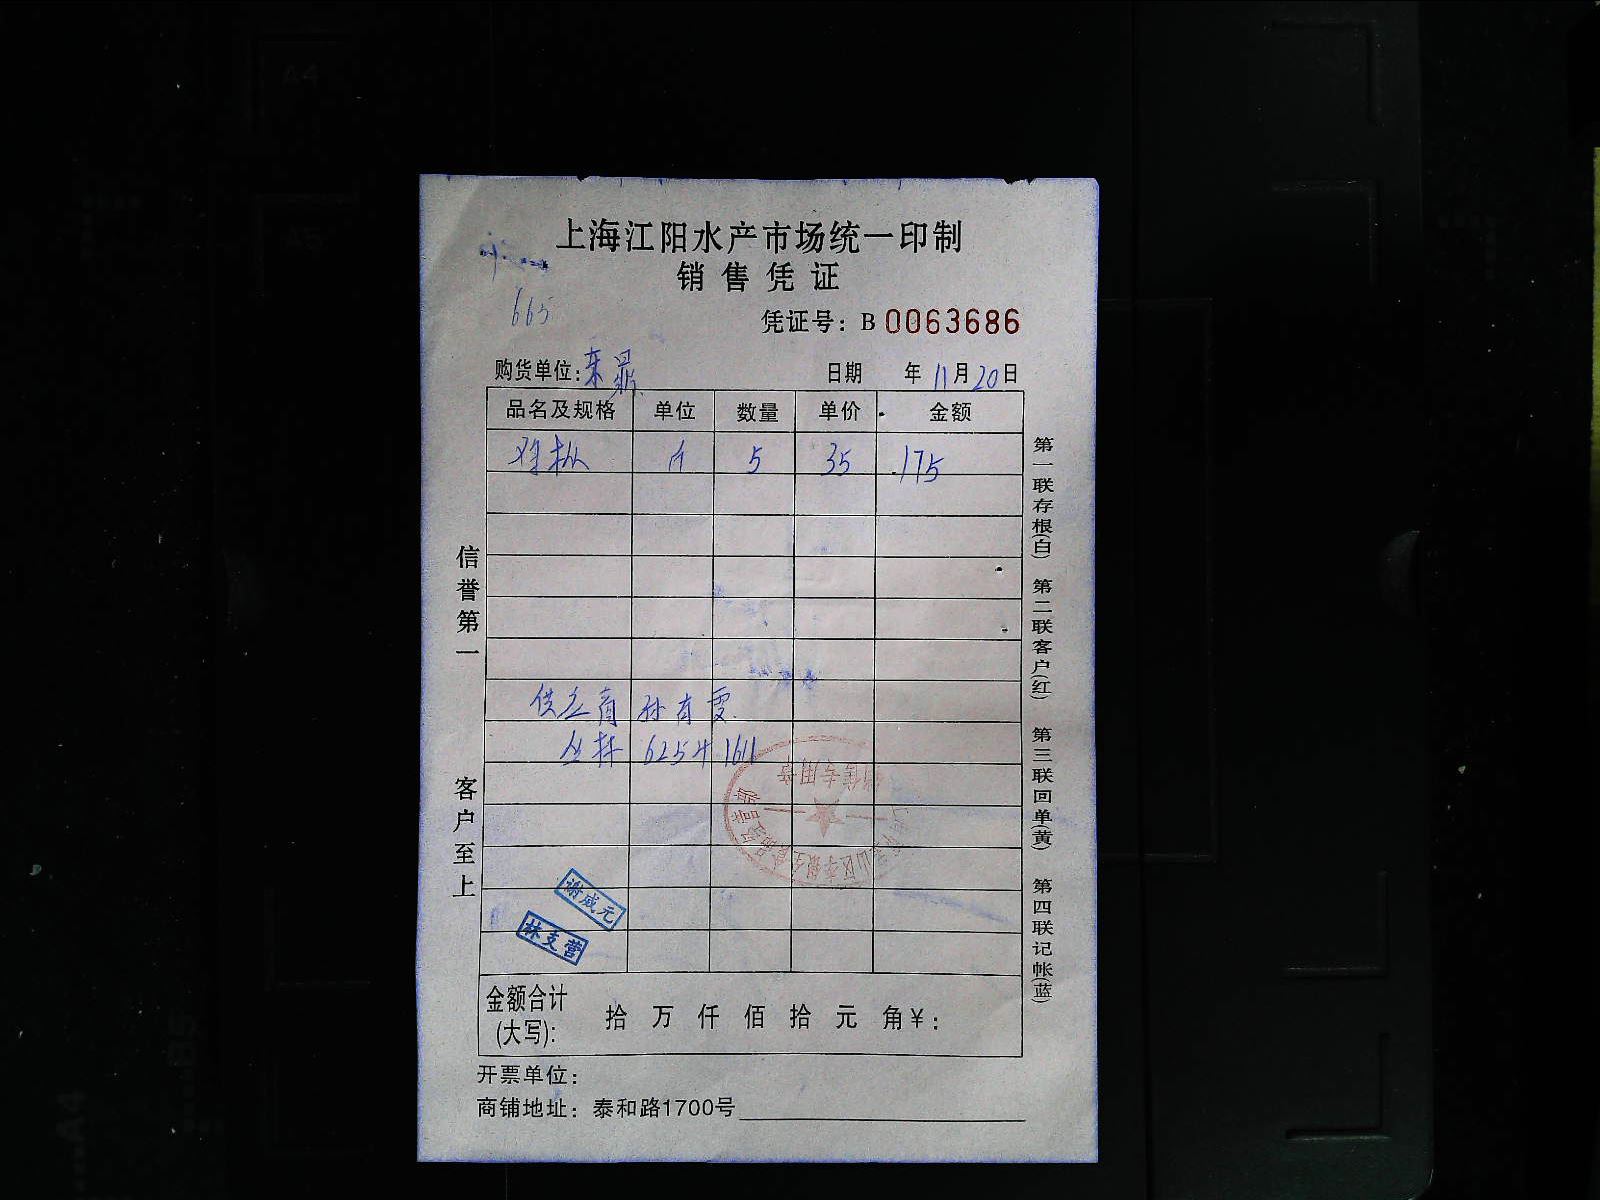 上海江阳水产市场统一印制
销售凭证
665
凭证号：B 0063686
购货单位：来鼎
日期 年 11 月 20 日
品名及规格 单位 数量 单价 金额
5 35 175
供应商 孙有雯
丛林 6254 1611
销售专用章
谢成元
林支营
金额合计(大写)： 拾 万 仟 佰 拾 元 角 ¥：
开票单位：
商铺地址：泰和路1700号
信誉第一
客户至上
第一联存根(白) 第二联客户(红) 第三联回单(黄) 第四联记帐(蓝)